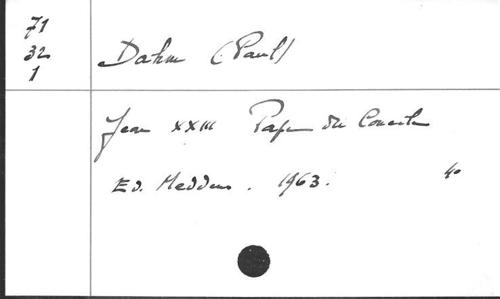 71
32
1
Dahm (Paul)
Jean XXIII Pape du Concile
Ed. Meddens. 1963. 4°